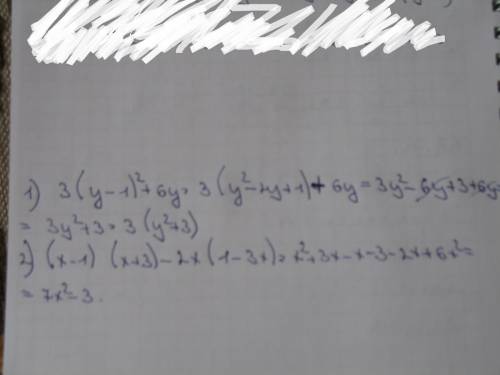 1) 3(y-1)²+6y= 3(y²-2y+1)+6y=3y²-6y+3+6y=
= 3y²+3=3(y²+3)
2) (x-1) (x+3)-2x(1-3x)=x²+3x-x-3-2x+6x²=
= 7x²-3.